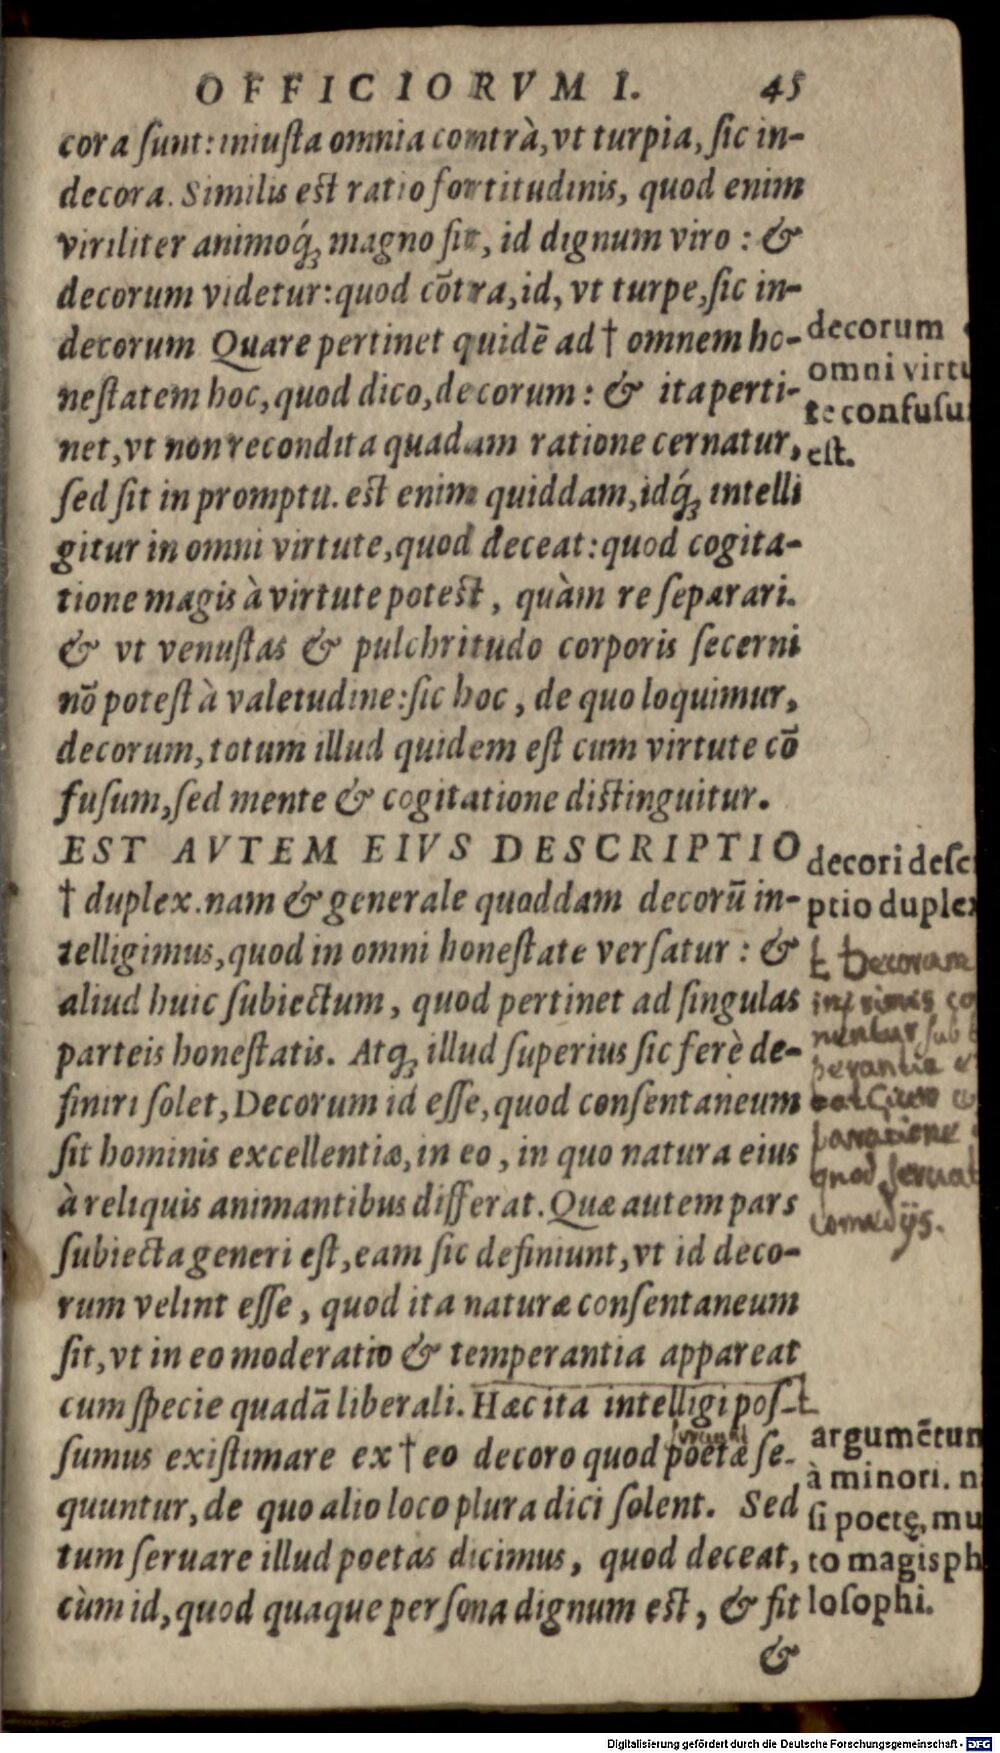 OFFICIORVM I. 45
cora sunt: iniusta omnia comtrà, vt turpia, sic in-
decora. Similis est ratio fortitudinis, quod enim
viriliter animoq́; magno fit, id dignum viro: &
decorum videtur: quod cōtra, id, vt turpe, sic in-
decorum Quare pertinet quidē ad † omnem ho-
nestatem hoc, quod dico, decorum: & ita perti-
net, vt non recondita quadam ratione cernatur,
sed sit in promptu. est enim quiddam, idq́; intelli
gitur in omni virtute, quod deceat: quod cogita-
tione magis à virtute potest, quàm re separari.
& vt venustas & pulchritudo corporis secerni
nō potest à valetudine: sic hoc, de quo loquimur,
decorum, totum illud quidem est cum virtute cō
fusum, sed mente & cogitatione distinguitur.
EST AVTEM EIVS DESCRIPTIO
† duplex. nam & generale quoddam decorū in-
telligimus, quod in omni honestate versatur: &
aliud huic subiectum, quod pertinet ad singulas
parteis honestatis. Atq; illud superius sic ferè de-
finiri solet, Decorum id esse, quod consentaneum
sit hominis excellentiæ, in eo, in quo natura eius
à reliquis animantibus differat. Quæ autem pars
subiecta generi est, eam sic definiunt, vt id deco-
rum velint esse, quod ita naturæ consentaneum
sit, vt in eo moderatio & temperantia appareat
cum specie quadā liberali. Hæc ita intelligi pos-
sumus existimare ex † eo decoro quod poetæ se-
quuntur, de quo alio loco plura dici solent. Sed
tum seruare illud poetas dicimus, quod deceat,
cùm id, quod quaque persona dignum est, & fit
&
decorum
omni virtu
te confusu
est.
decori descr
ptio duplex
Decorum
quod seruat
comœdijs.
argumētum
à minori. n
si poetę, mu
to magis ph
losophi.
Digitalisierung gefördert durch die Deutsche Forschungsgemeinschaft - DFG